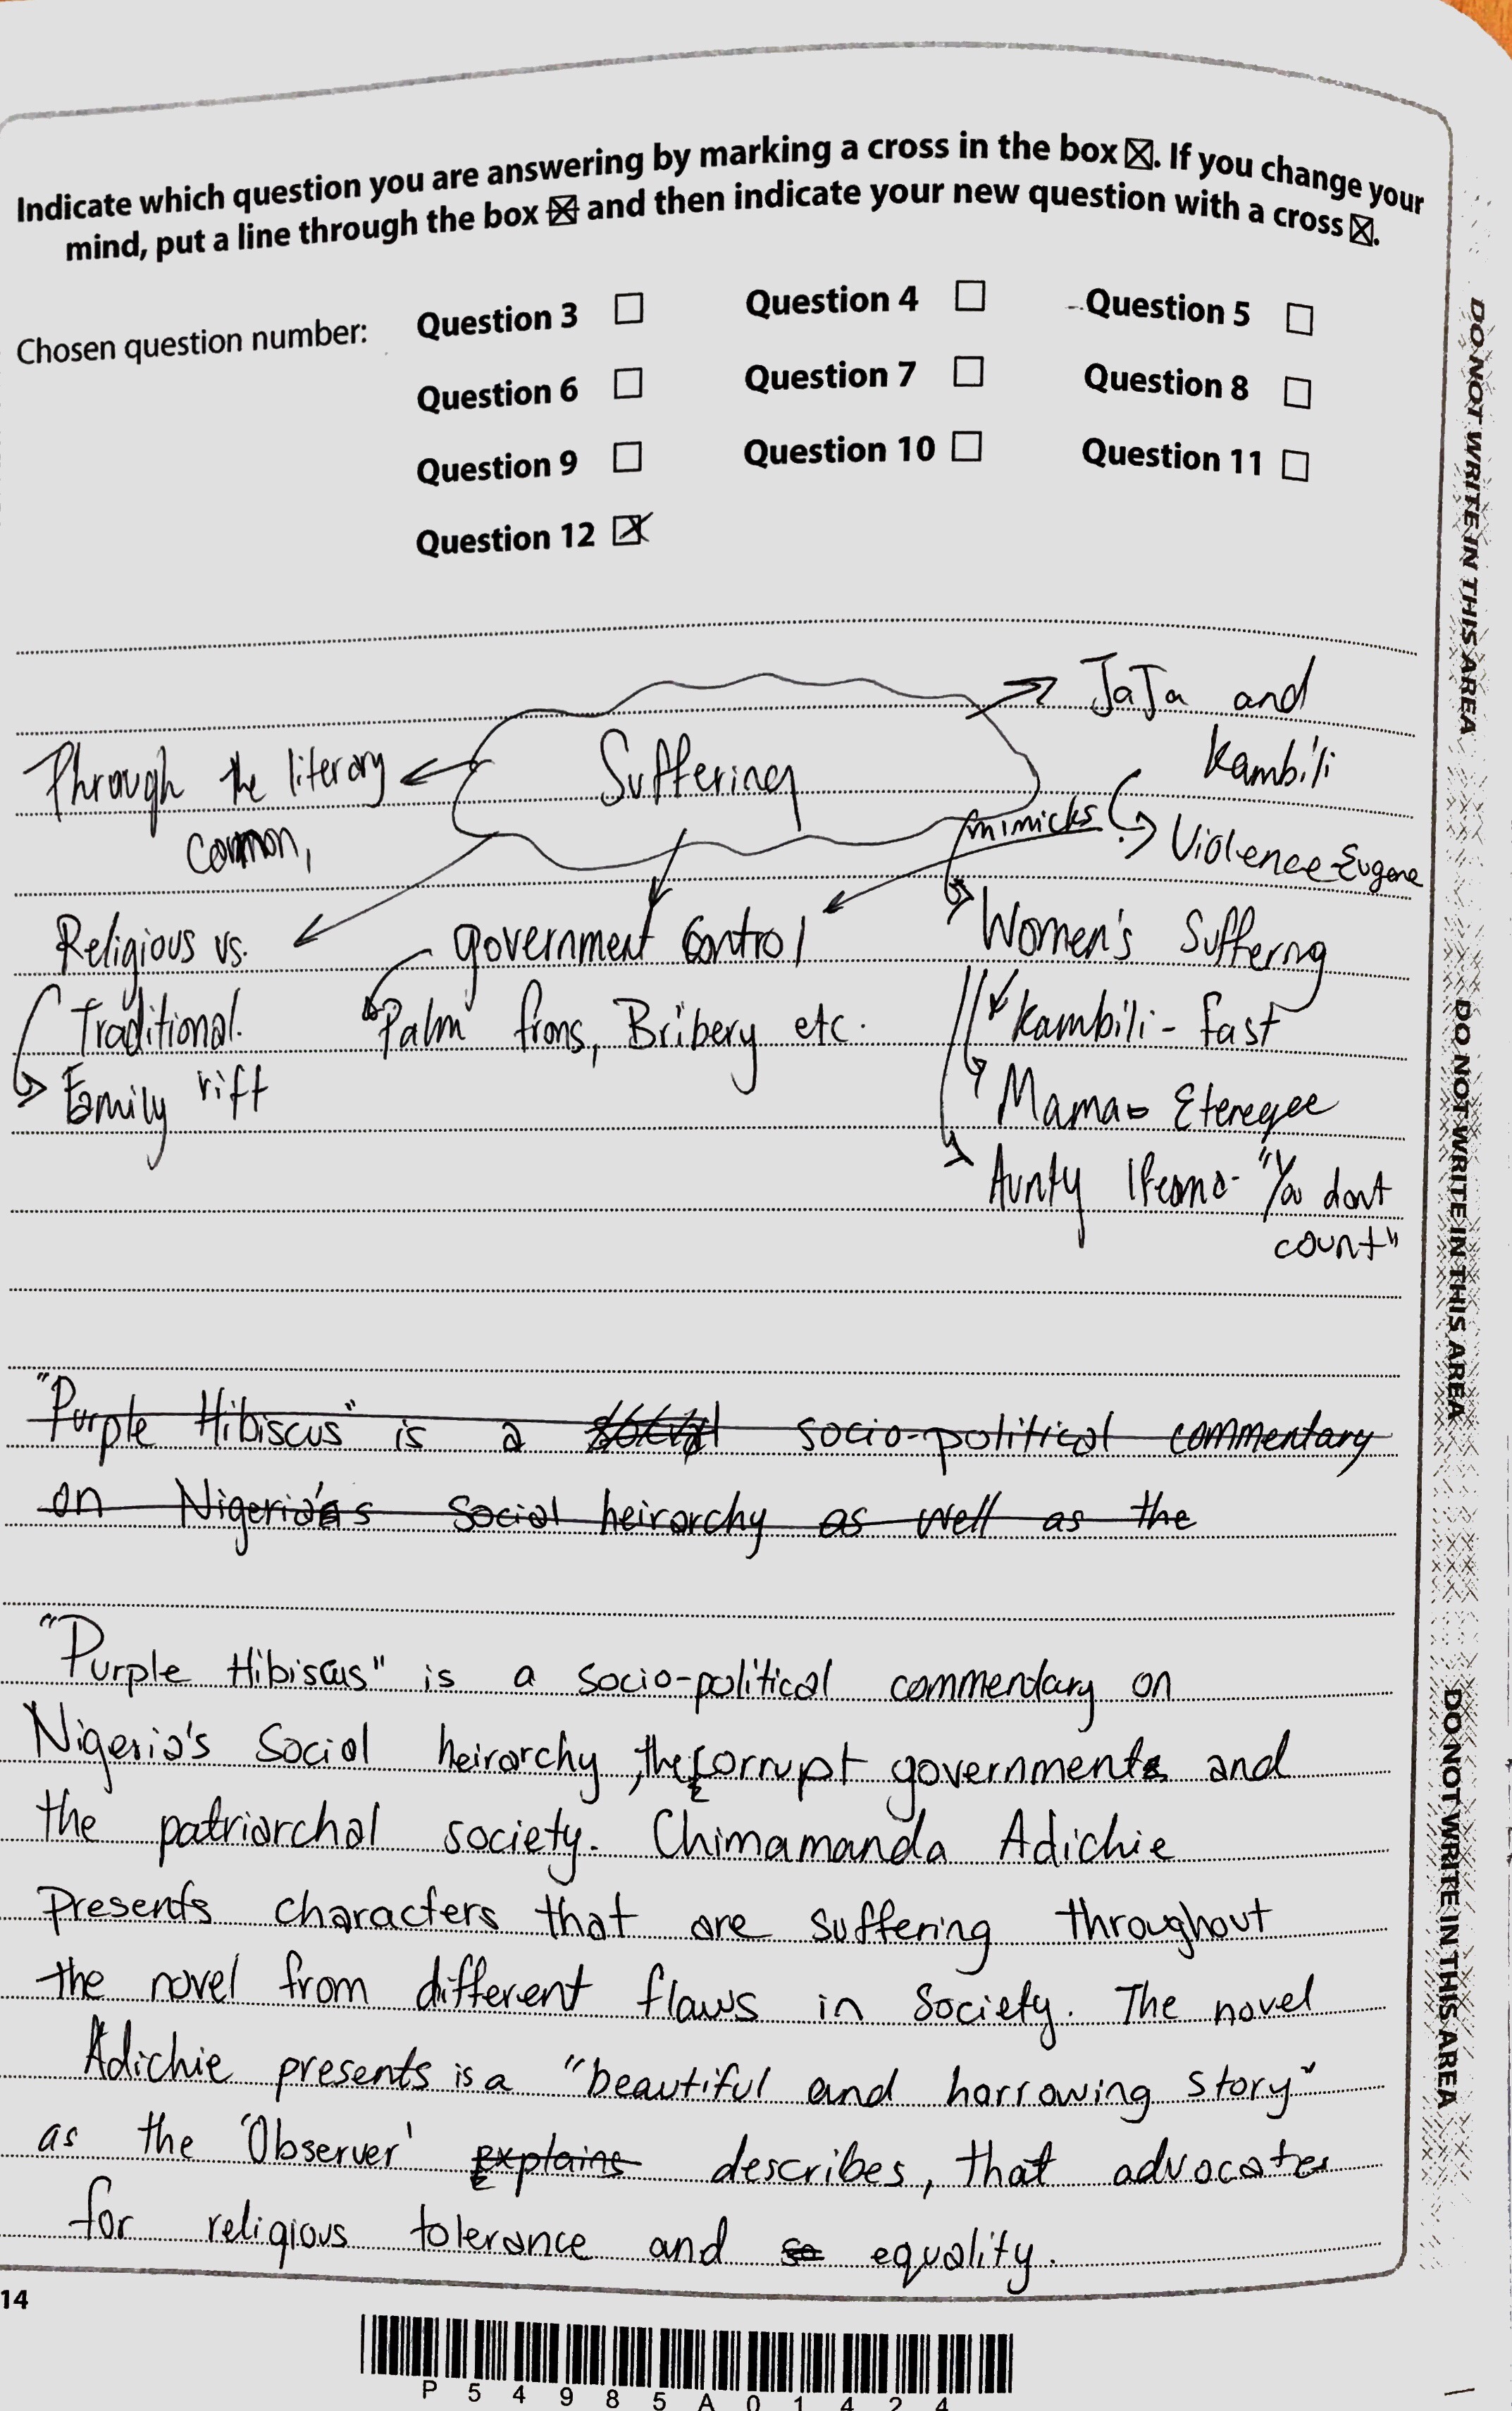 Indicate which question you are answering by marking a cross in the box ☒. If you change your
mind, put a line through the box ☒ and then indicate your new question with a cross ☒.
Chosen question number: Question 3 ☐ Question 4 ☐ Question 5 ☐
Question 6 ☐ Question 7 ☐ Question 8 ☐
Question 9 ☐ Question 10 ☐ Question 11 ☐
Question 12 ☒
Suffering
JaJa and
Kambili
Violence - Eugene
mimicks
Through the literary
common,
Religious vs.
Traditional.
Family rift
government control
Palm frons, Bribery etc.
Women's Sufferng
Kambili - Fast
Mama - Eteregee
Aunty Ifeoma - "You dont
count"
"Purple Hibiscus" is a social socio-political commentary
on Nigeria's social heirarchy as well as the
"Purple Hibiscus" is a socio-political commentary on
Nigeria's Social heirarchy, the corrupt government and
the patriarchal society. Chimamanda Adichie
presents characters that are suffering throughout
the novel from different flaws in Society. The novel
Adichie presents is a "beautiful and harrowing story"
as the 'Observer' explains describes, that advocates
for religious tolerance and so equality.
14
P54985A01424
DO NOT WRITE IN THIS AREA
DO NOT WRITE IN THIS AREA
DO NOT WRITE IN THIS AREA